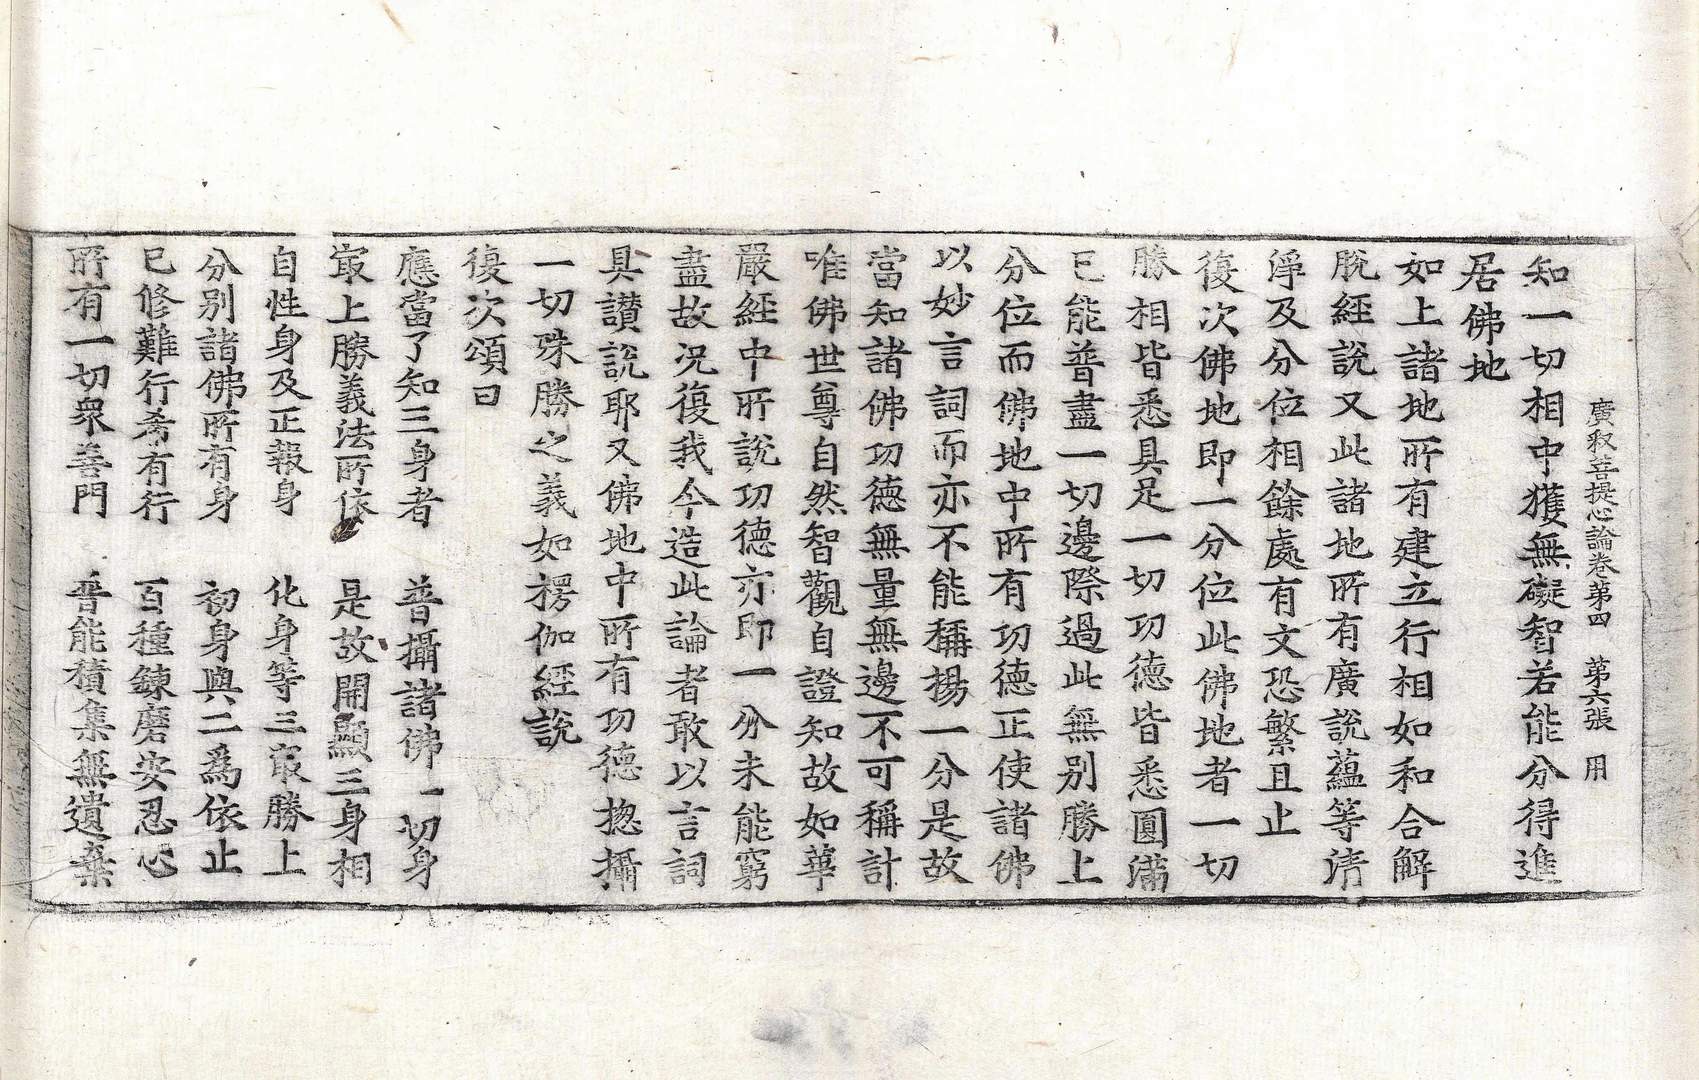 廣釈菩提心論卷第四　第六張　用
知一切相中獲無礙智若能分得進
居佛地
如上諸地所有建立行相如和合解
脫經說又此諸地所有廣說蘊等清
淨及分位相餘處有文恐繁且止
復次佛地即一分位此佛地者一切
勝相皆悉具足一切功德皆悉圓滿
已能普盡一切邊際過此無別勝上
分位而佛地中所有功德正使諸佛
以妙言詞而亦不能稱揚一分是故
當知諸佛功德無量無邊不可稱計
唯佛世尊自然智觀自證知故如華
嚴經中所說功德亦即一分未能窮
盡故況復我今造此論者敢以言詞
具讃說耶又佛地中所有功德揔攝
一切殊勝之義如楞伽經說
復次頌曰
應當了知三身者　普攝諸佛一切身
㝡上勝義法所依　是故開顯三身相
自性身及正報身　化身等三㝡勝上
分別諸佛所有身　初身與二爲依止
已修難行希有行　百種鍊磨安忍心
所有一切衆善門　普能積集無遺棄